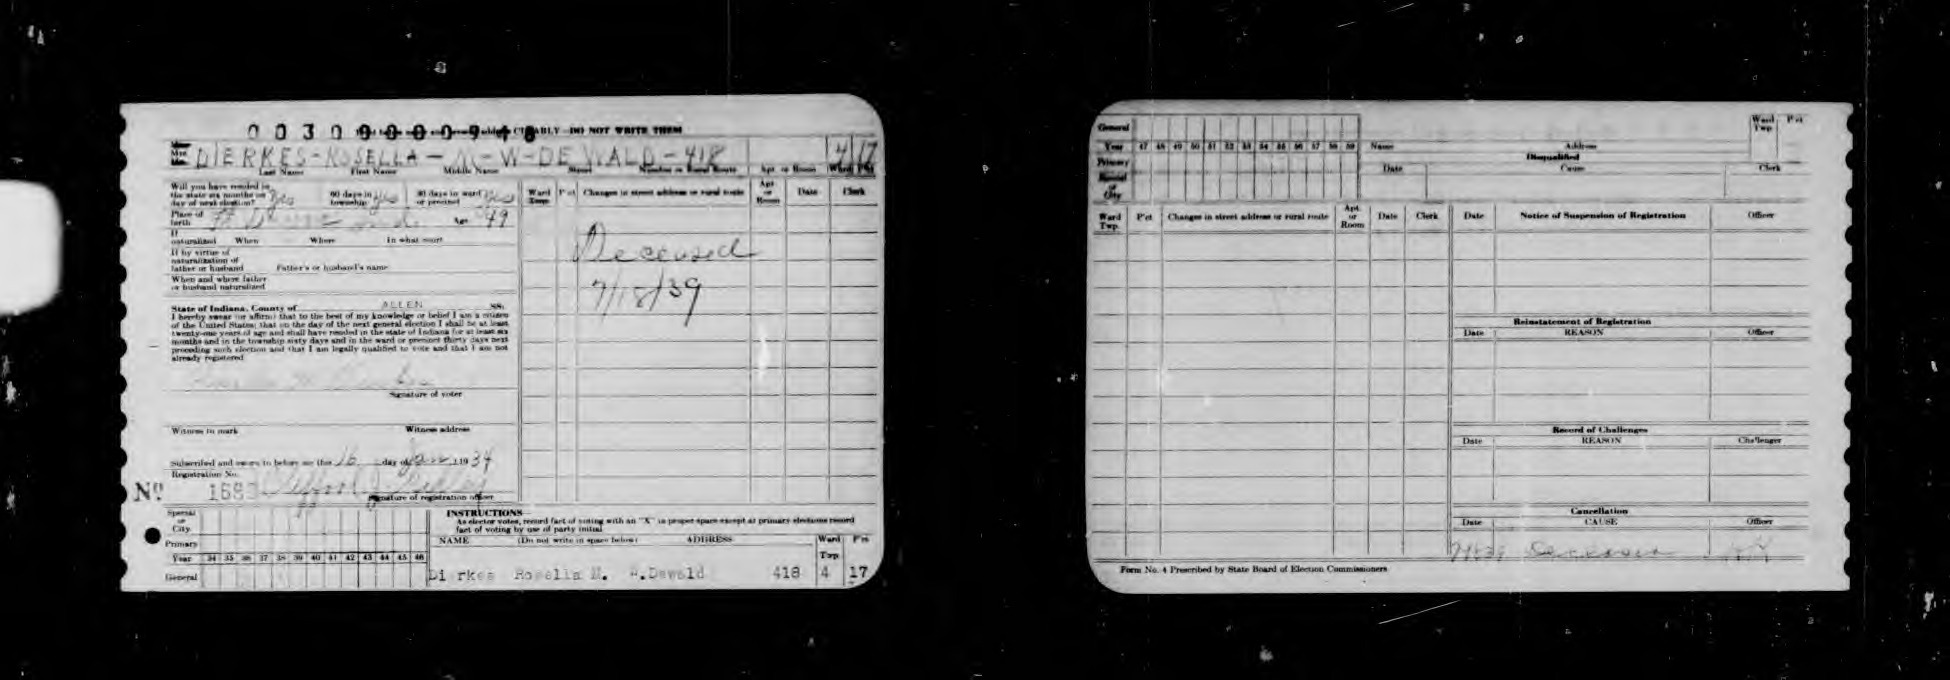 00309000948
CLEARLY—DO NOT WRITE THEM
Mr.
Mrs.
Miss
DIERKES-ROSELLA-M-W-DE WALD-418 4 17
Last Name First Name Middle Name Street Number or Rural Route Apt. or Room Ward Pct.
Will you have resided in
the state six months on
day of next election? Yes
60 days in
township yes
30 days in ward
or precinct Yes
Place of
birth Ft Wayne Ind. Age 49
If
naturalized When Where In what court
If by virtue of
naturalization of
father or husband Father's or husband's name
When and where father
or husband naturalized
State of Indiana, County of ALLEN SS:
I hereby swear (or affirm) that to the best of my knowledge or belief I am a citizen
of the United States; that on the day of the next general election I shall be at least
twenty-one years of age and shall have resided in the state of Indiana for at least six
months and in the township sixty days and in the ward or precinct thirty days next
preceding such election and that I am legally qualified to vote and that I am not
already registered
Signature of voter
Witness to mark Witness address
Subscribed and sworn to before me this 16 day of Jan 1934
Registration No.
No. 168
Signature of registration officer
Ward
Twp. P'ct Changes in street address or rural route Apt.
or
Room Date Clerk
Deceased
7/18/39
Special
or
City
Primary
Year 34 35 36 37 38 39 40 41 42 43 44 45 46
General
INSTRUCTIONS
As elector votes, record fact of voting with an "X" in proper space except at primary elections record
fact of voting by use of party initial
NAME (Do not write in space below) ADDRESS Ward
Twp P'ct
Dierkes Rosella M. W.Dewald 418 4 17
General
Year 47 48 49 50 51 52 53 54 55 56 57 58 59
Primary
Special
or
City
Name Address Ward
Twp P'ct
Disqualified
Date Cause Clerk
Ward
Twp. P'ct Changes in street address or rural route Apt.
or
Room Date Clerk
Date Notice of Suspension of Registration Officer
Reinstatement of Registration
Date REASON Officer
Record of Challenges
Date REASON Challenger
Cancellation
Date CAUSE Officer
71839 Deceased
Form No. 4 Prescribed by State Board of Election Commissioners